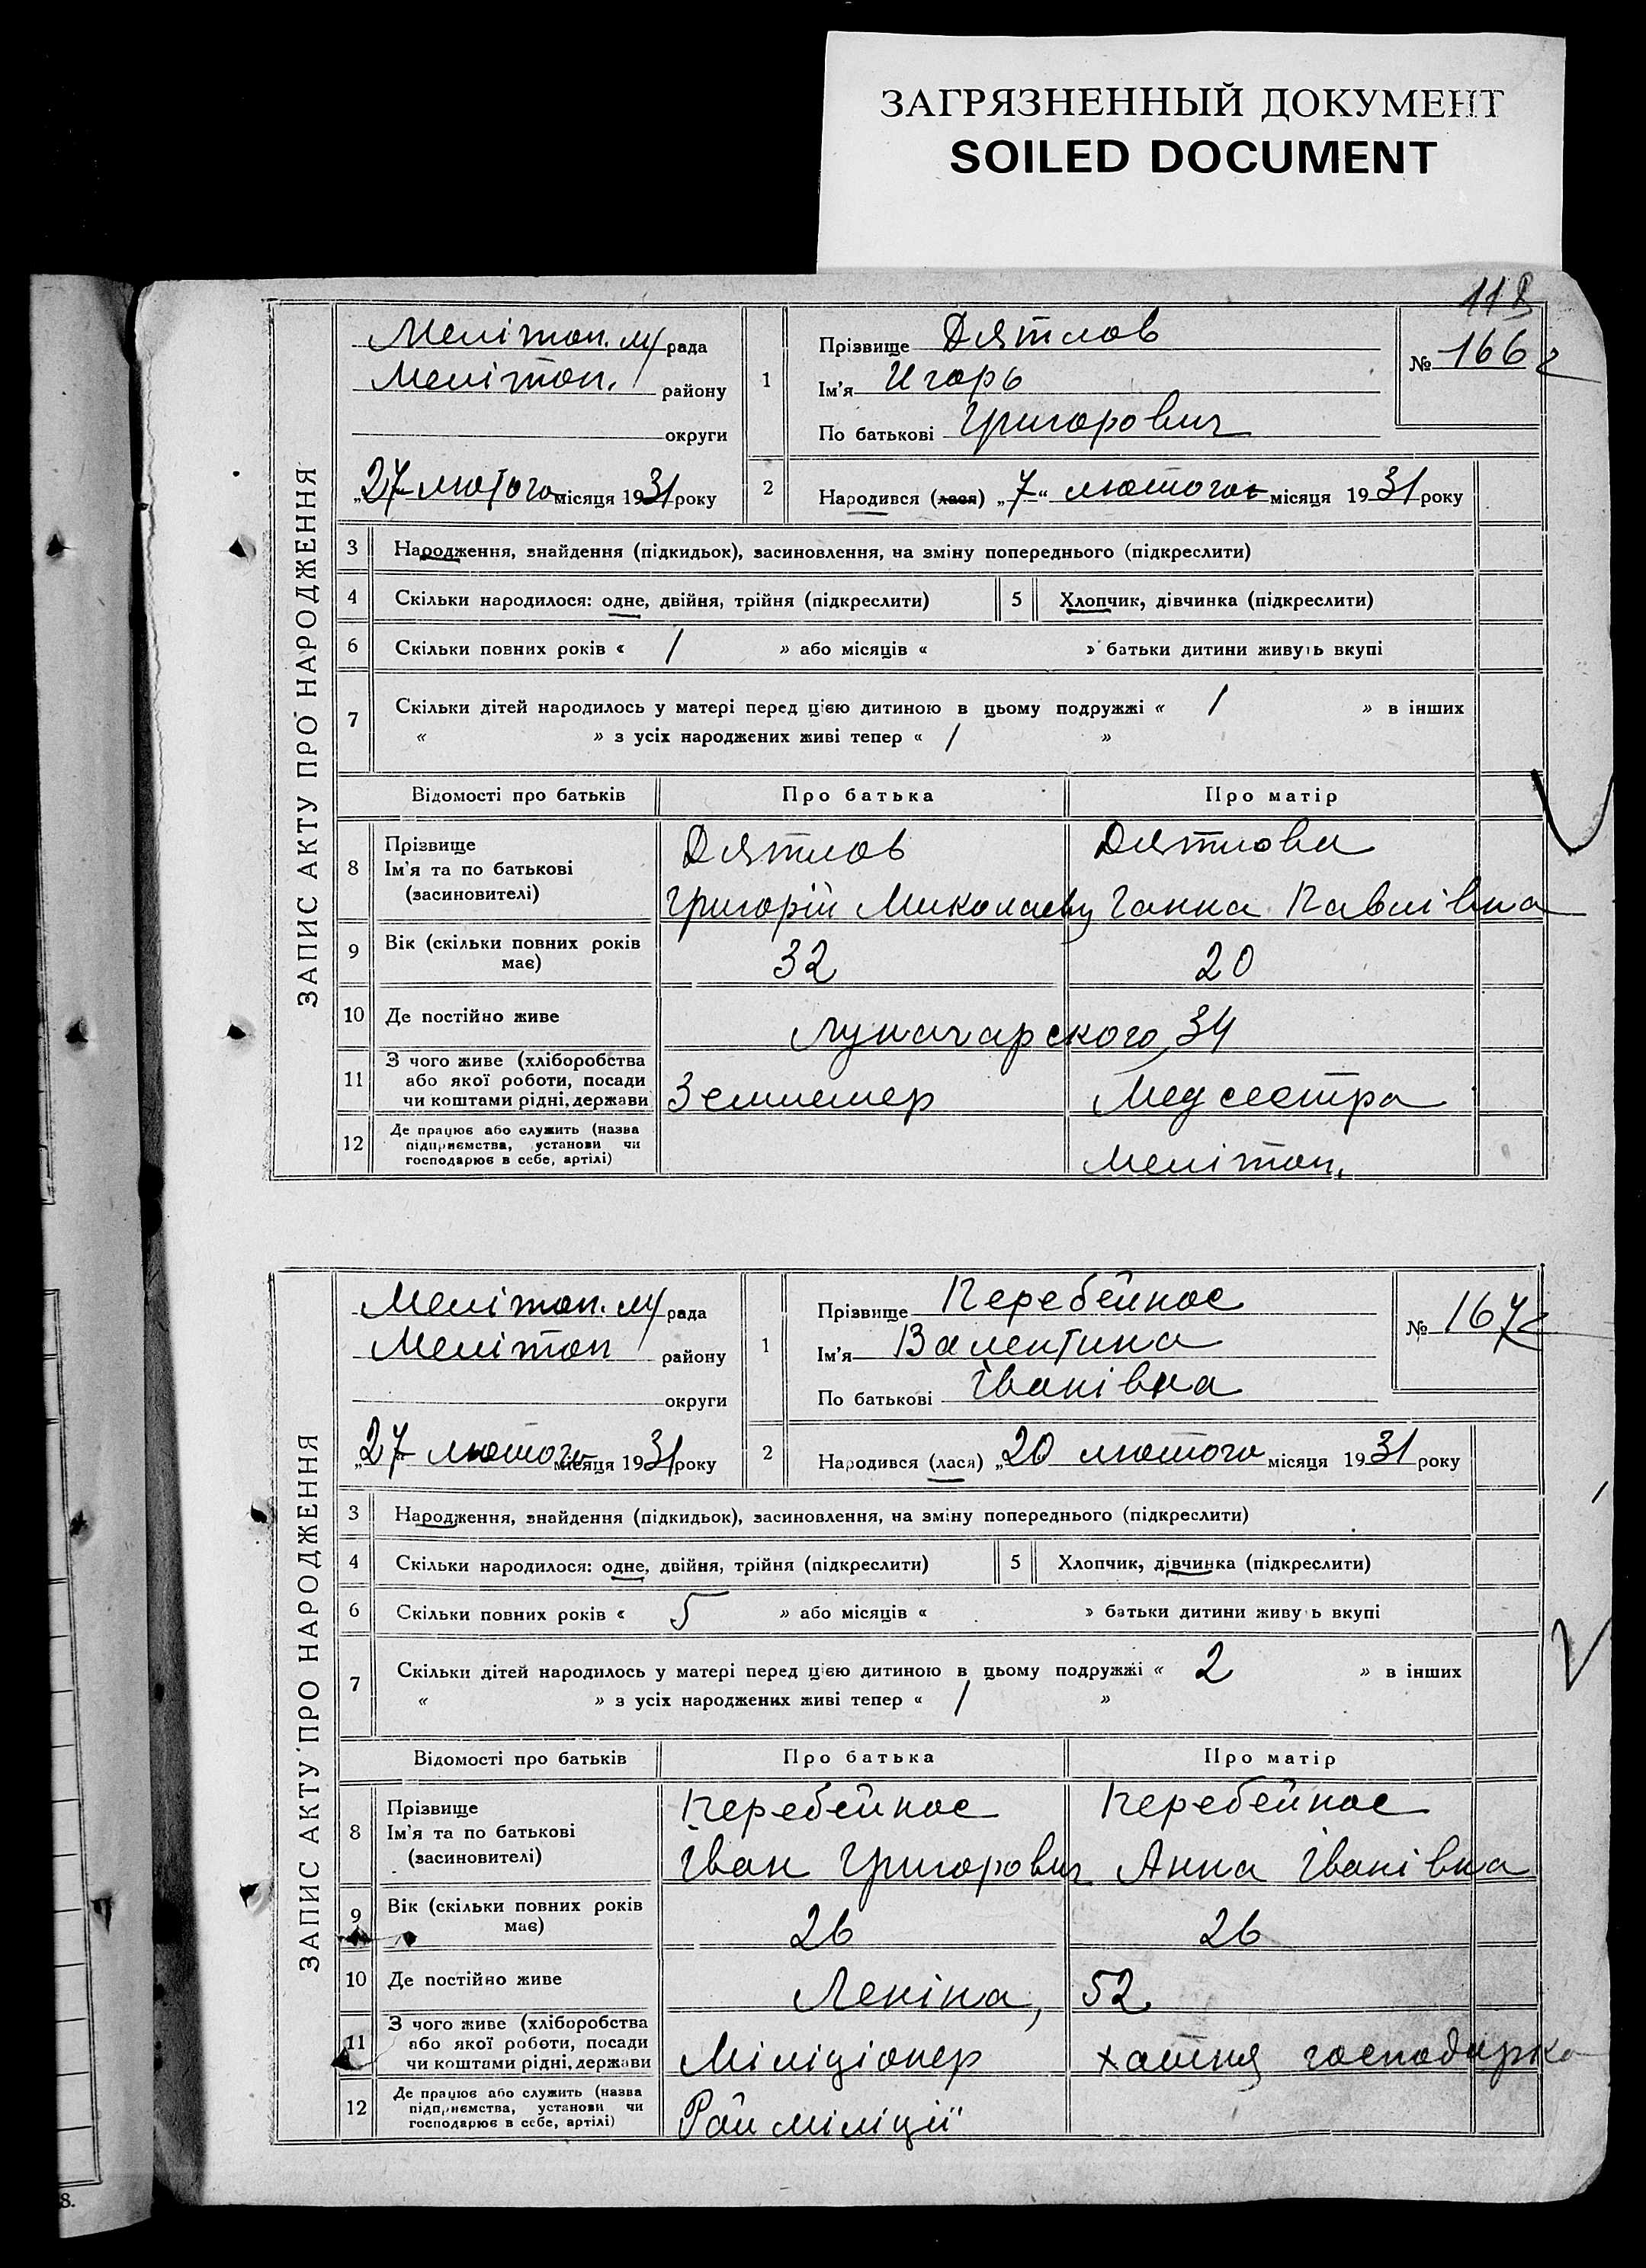 ЗАГРЯЗНЕННЫЙ ДОКУМЕНТ
SOILED DOCUMENT
118
ЗАПИС АКТУ ПРО НАРОДЖЕННЯ
Мелітоп. м/рада
Мелітоп. району
округи
„27 лютого місяця 1931 року
1
Прізвище Дятлов
Ім'я Игорь
По батькові Григорович
№ 166
2
Народився (лася) „7“ лютого місяця 1931 року
3 Народження, знайдення (підкидьок), засиновлення, на зміну попереднього (підкреслити)
4 Скільки народилося: одне, двійня, трійня (підкреслити) 5 Хлопчик, дівчинка (підкреслити)
6 Скільки повних років « 1 » або місяців « » батьки дитини живуть вкупі
7 Скільки дітей народилось у матері перед цією дитиною в цьому подружжі « 1 » в інших
« » з усіх народжених живі тепер « 1 »
Відомості про батьків Про батька Про матір
8 Прізвище
Ім'я та по батькові
(засновителі)
Дятлов
Григорій Миколаевич
Дятлова
Ганна Павлівна
9 Вік (скільки повних років
має) 32 20
10 Де постійно живе Луначарского, 34
11 З чого живе (хліборобства
або якої роботи, посади
чи коштами рідні, держави
Землемер Медсестра
12 Де працює або служить (назва
підприємства, установи чи
господарює в себе, артілі)
Мелітоп.
ЗАПИС АКТУ ПРО НАРОДЖЕННЯ
Мелітоп. м/рада
Мелітоп району
округи
„27 лютого місяця 1931 року
1
Прізвище Перебейнос
Ім'я Валентина
По батькові Іванівна
№ 167
2
Народився (лася) „20 лютого місяця 1931 року
3 Народження, знайдення (підкидьок), засиновлення, на зміну попереднього (підкреслити)
4 Скільки народилося: одне, двійня, трійня (підкреслити) 5 Хлопчик, дівчинка (підкреслити)
6 Скільки повних років « 5 » або місяців « » батьки дитини живуть вкупі
7 Скільки дітей народилось у матері перед цією дитиною в цьому подружжі « 2 » в інших
« » з усіх народжених живі тепер « 1 »
Відомості про батьків Про батька Про матір
8 Прізвище
Ім'я та по батькові
(засиновителі)
Перебейнос
Іван Григорович
Перебейнос
Анна Іванівна
9 Вік (скільки повних років
має) 26 26
10 Де постійно живе Леніна, 52
11 З чого живе (хліборобства
або якої роботи, посади
чи коштами рідні, держави
Міліціонер хатня господарка
12 Де працює або служить (назва
підприємства, установи чи
господарює в себе, артілі)
Рай міліції
8.